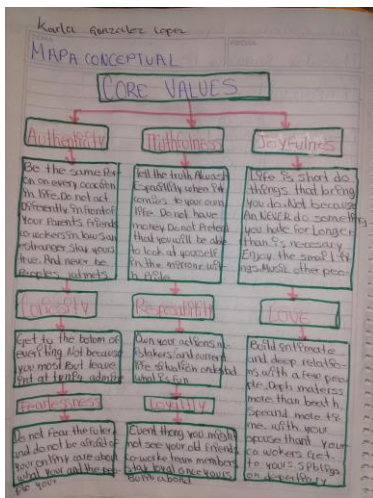 Karla Gonzalez Lopez
MAPA CONCEPTUAL
CORE VALUES
Authenticity
Be the same Per
on on every ocassion
in life. Do not act
Differently in front of
your Parents, friends
coworkers in laws an
estranger stay yours
true. And never be
Peoples
Truthfulness
Tell the truth Always
Espacially when it
comes to your own
life. Do not have
money Do not Preten
that you will be able
to look at yourself
in the mirrore wit
h Pride
Joyfulnes
Life is short do
things that bring
you do. Not because
An NEVER do somethi
you hate for Longer
than is necessary
Enjoy the small th
ngs. Music other peo
Curiosity
Get to the botom of
everithing Not because
you most But leave
Responsability
Own your actions, mi
stakers and current
life situation
what is fun
LOVE
Build
and deep relatio
ns with a few peo
ple, Deph
more than breath.
Speand more ti
me. with your
spouse than your
co workers Get
to your siblings
on
fearlessness
Do not Fear the futer
and do not be afraid of
your only care about
what your and the pe
ple your
Loyaltly
Event thong you might
not see your old friends
co-worke team members
stay loyal once yours